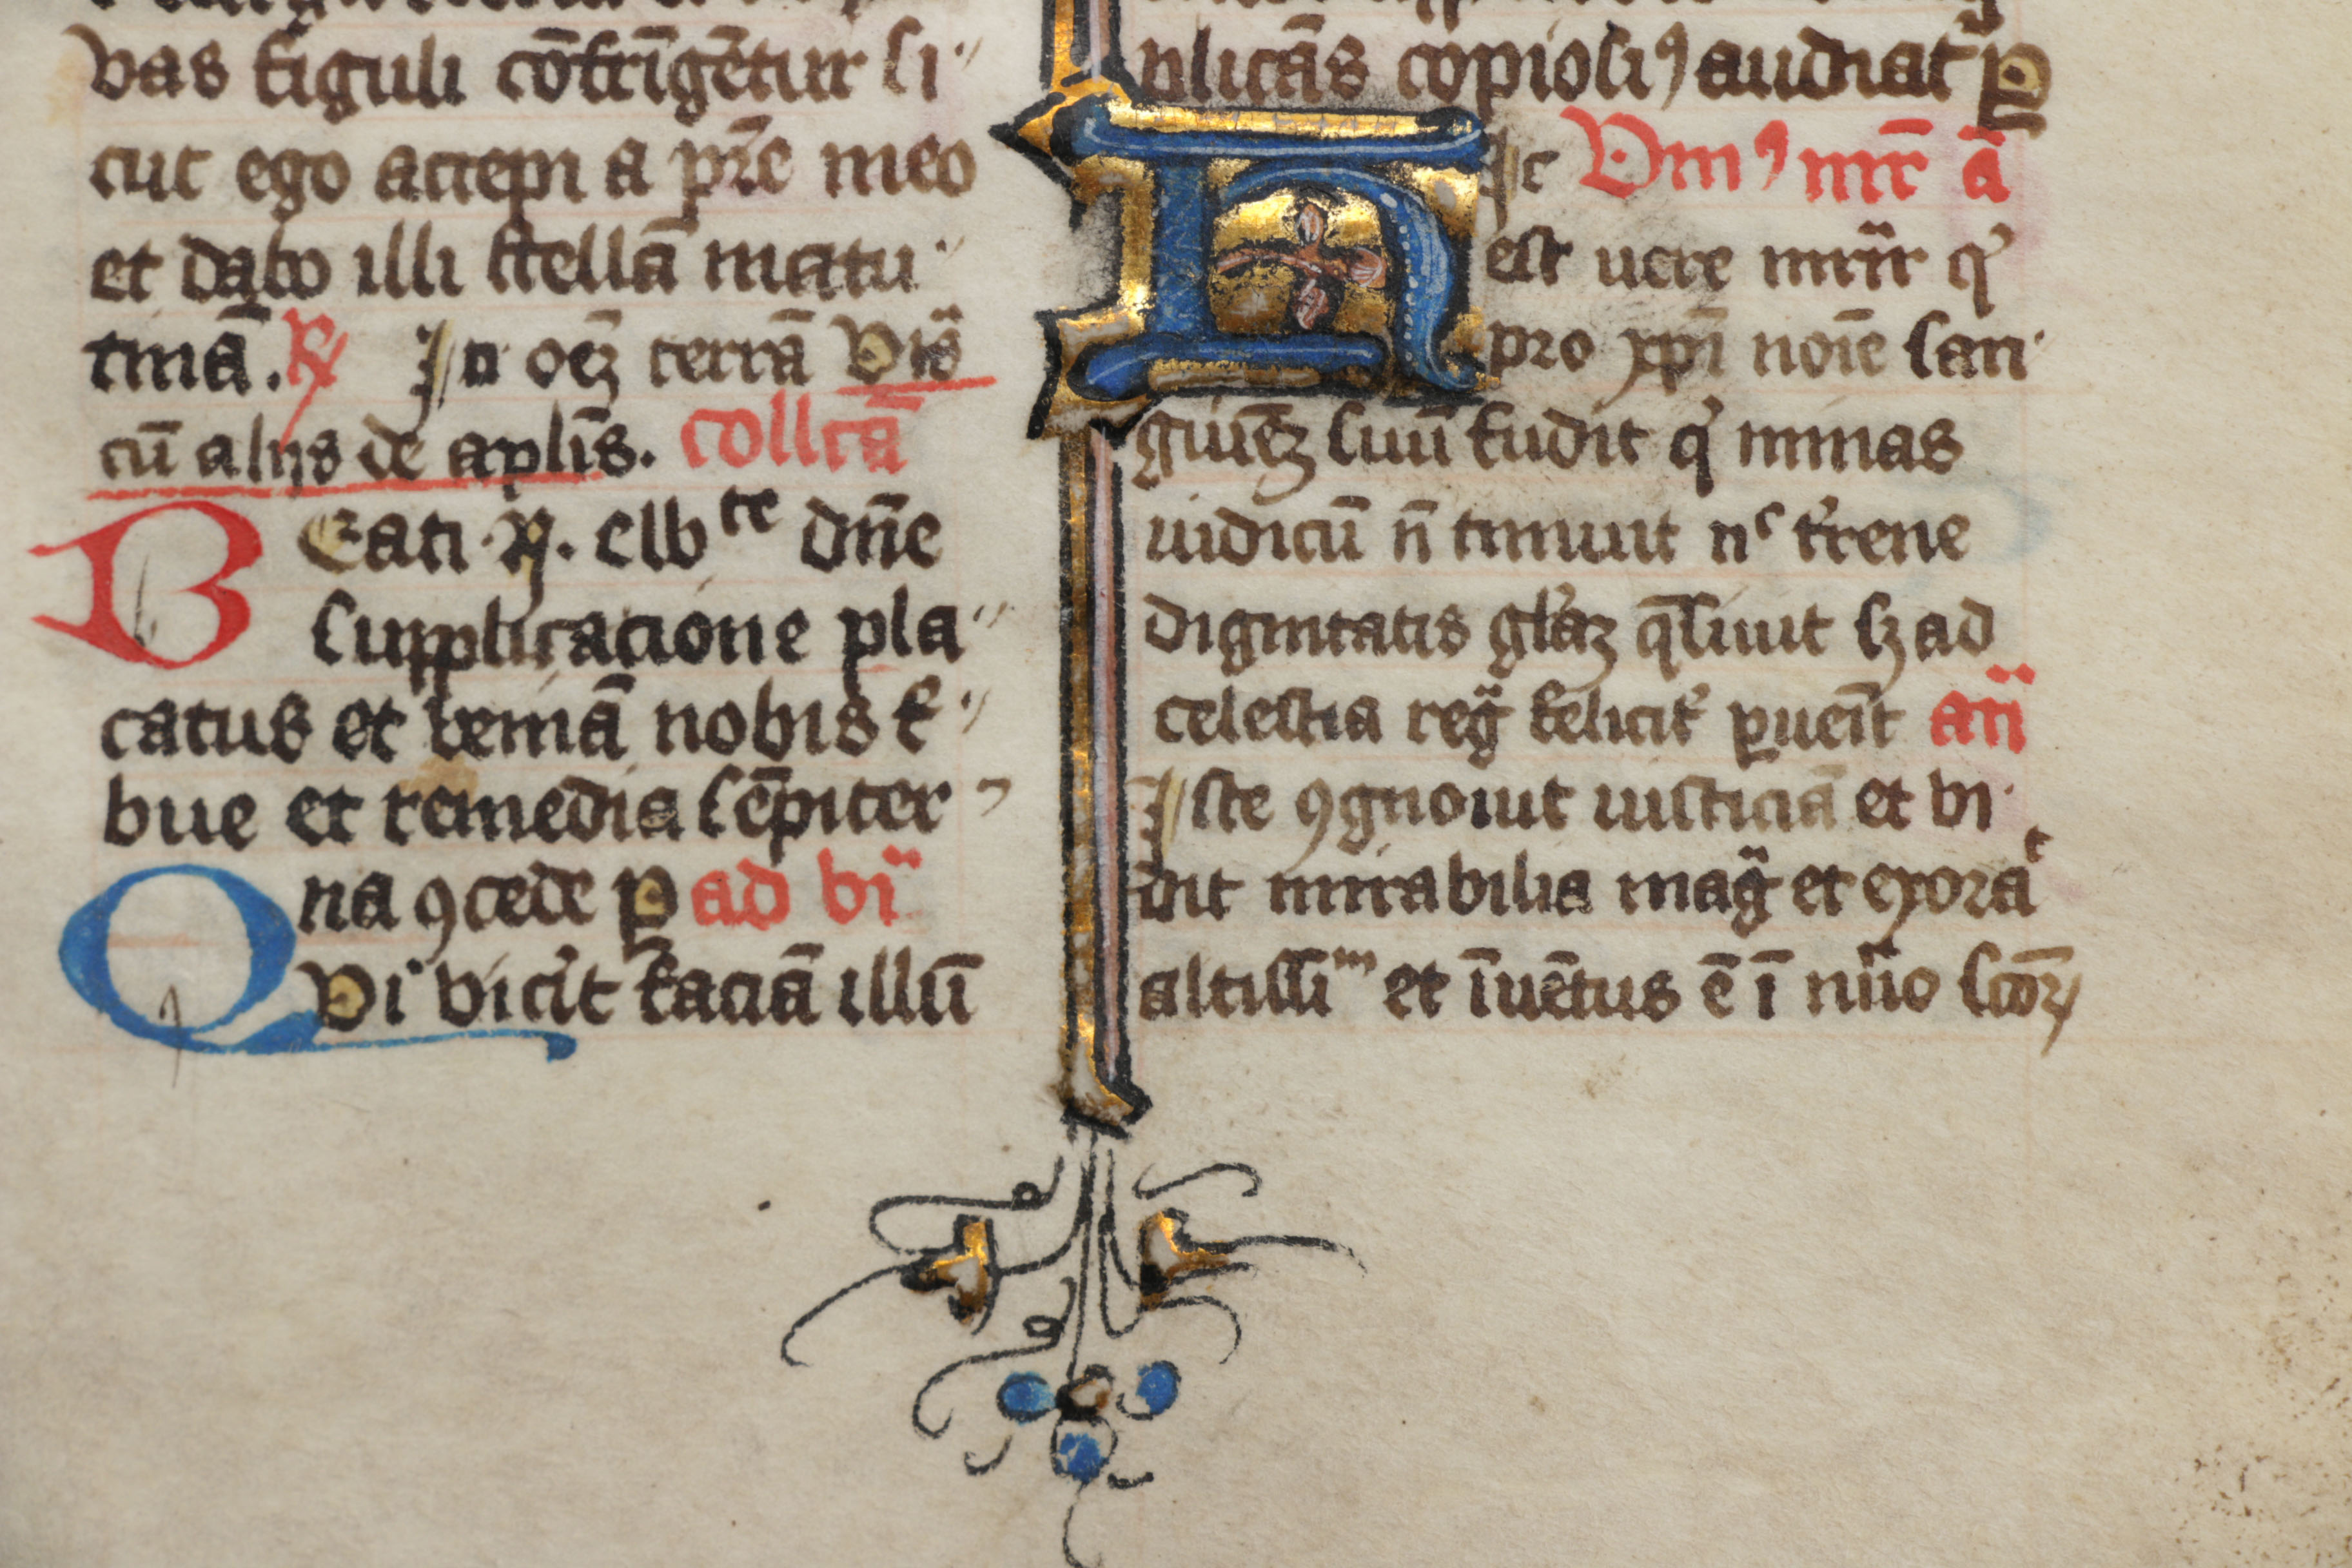 vas figuli cōfrīgētur si
cut ego accepi a pr̄e meo
et dabo illi stellā matu
tinā. ℟ In oēꝫ terrā Vꝰ
cū alijs de apl̄is. collcā
BEati .N. elbte dn̄e
supplicacione pla
catus et veniā nobis t͛
bue et remedia sēpiter
na ꝯcede p ad bn̄
QVi vicit faciā illū
plicās copiosiꝰ audiat͛ ꝑ
HIc Vnꝰ mr̄ ā
est vere mr̄ir qͥ
pro xp̄i noīe san
guinēꝫ suū fudit qͥ minas
iudicū n̄ timuit nᶜ t͛rene
dignitatis gl̓aꝫ q̄siuit sꝫ ad
celestia reg̃ felicit͛ ꝑuēit an̄
Iste ꝯgnouit iusticiā et vi
dit mirabilia mag̃ et exorat
altissimᵐ et īuētus ē ī nūo scōꝝ